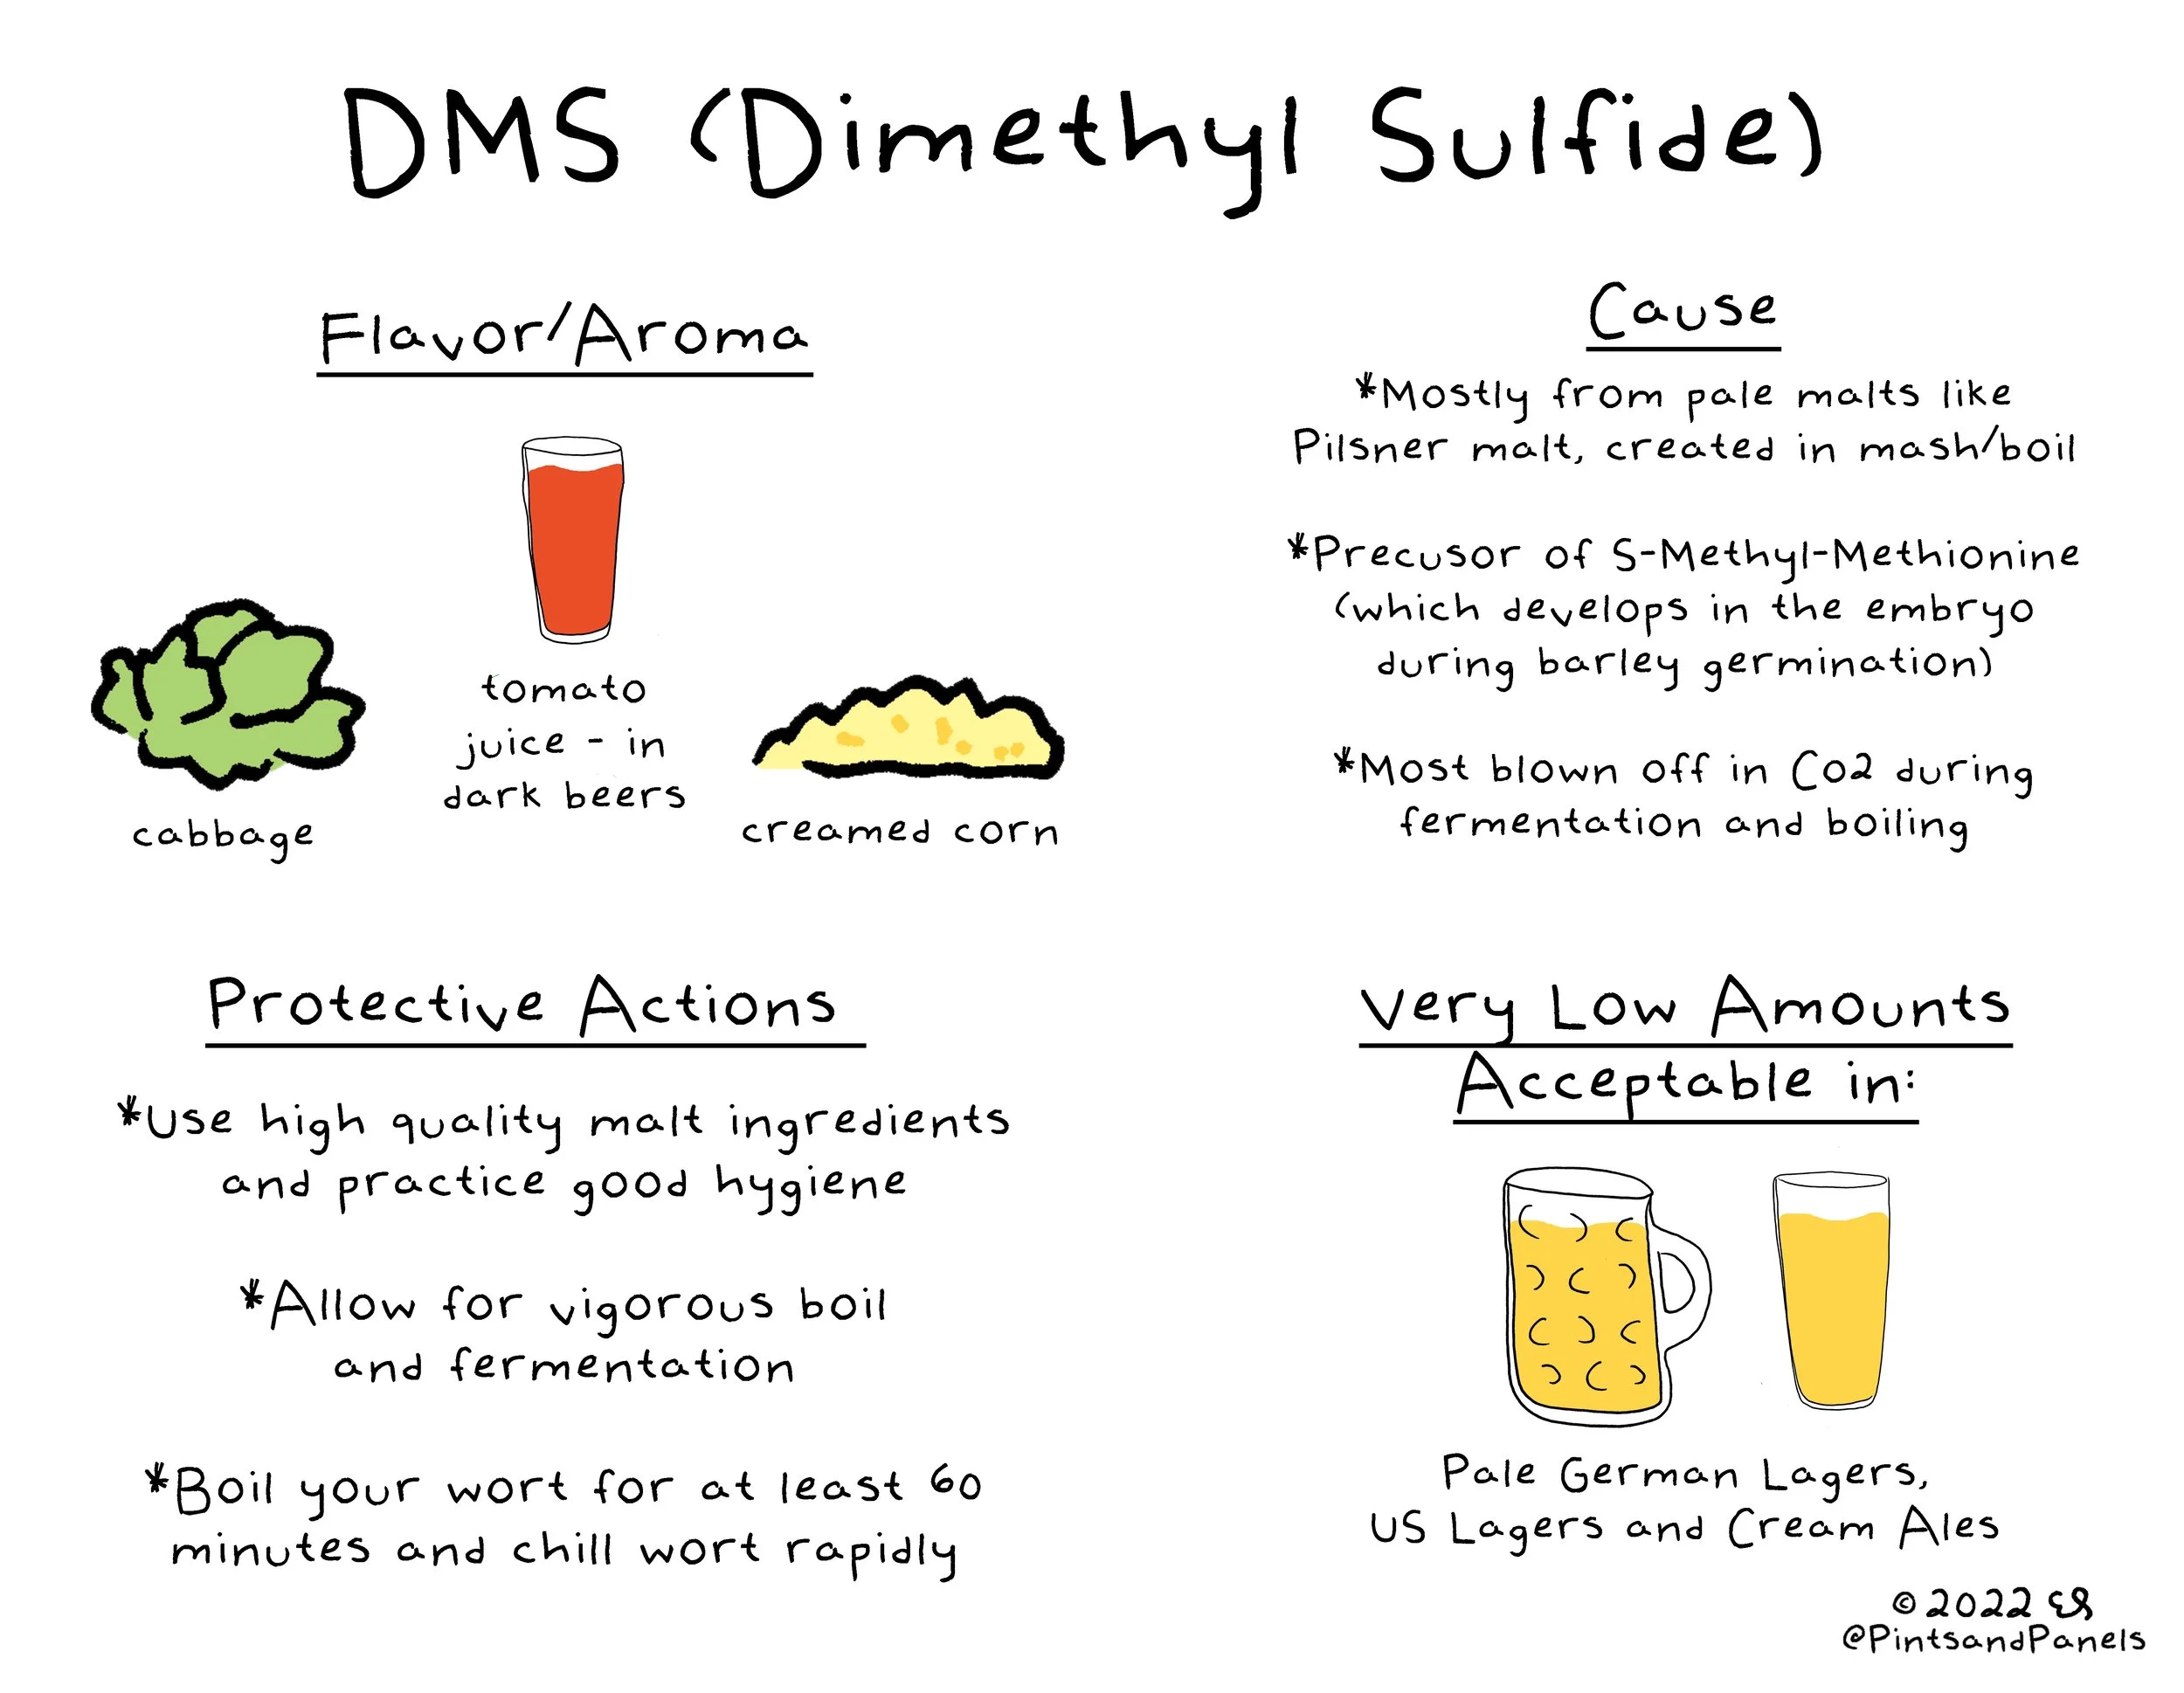 DMS (Dimethyl Sulfide)
Flavor/Aroma
tomato
juice - in
dark beers
cabbage
creamed corn
Cause
*Mostly from pale malts like
Pilsner malt, created in mash/boil
*Precusor of S-Methyl-Methionine
(which develops in the embryo
during barley germination)
*Most blown off in Co2 during
fermentation and boiling
Protective Actions
*Use high quality malt ingredients
and practice good hygiene
*Allow for vigorous boil
and fermentation
*Boil your wort for at least 60
minutes and chill wort rapidly
Very Low Amounts
Acceptable in:
Pale German Lagers,
US Lagers and Cream Ales
© 2022 ES
@PintsandPanels